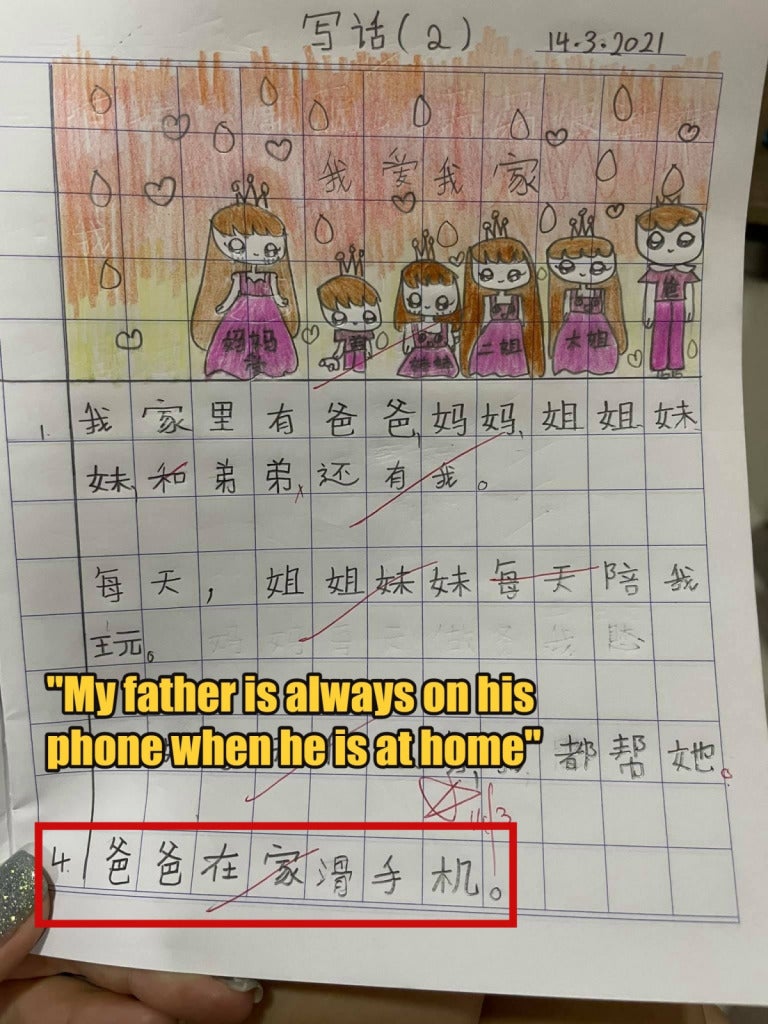 写话(2) 14.3.2021
我爱我家
妈妈 妹妹 二姐 大姐
1. 我家里有爸爸,妈妈,姐姐,妹
妹,和弟弟,还有我。
每天,姐姐妹妹每天陪我
玩。
"My father is always on his
phone when he is at home"
都帮她。
4. 爸爸在家滑手机。